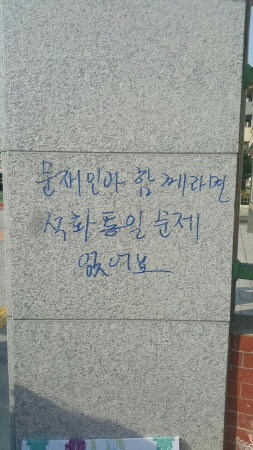 문재인아 함께라면
석화통일 문제
없어요